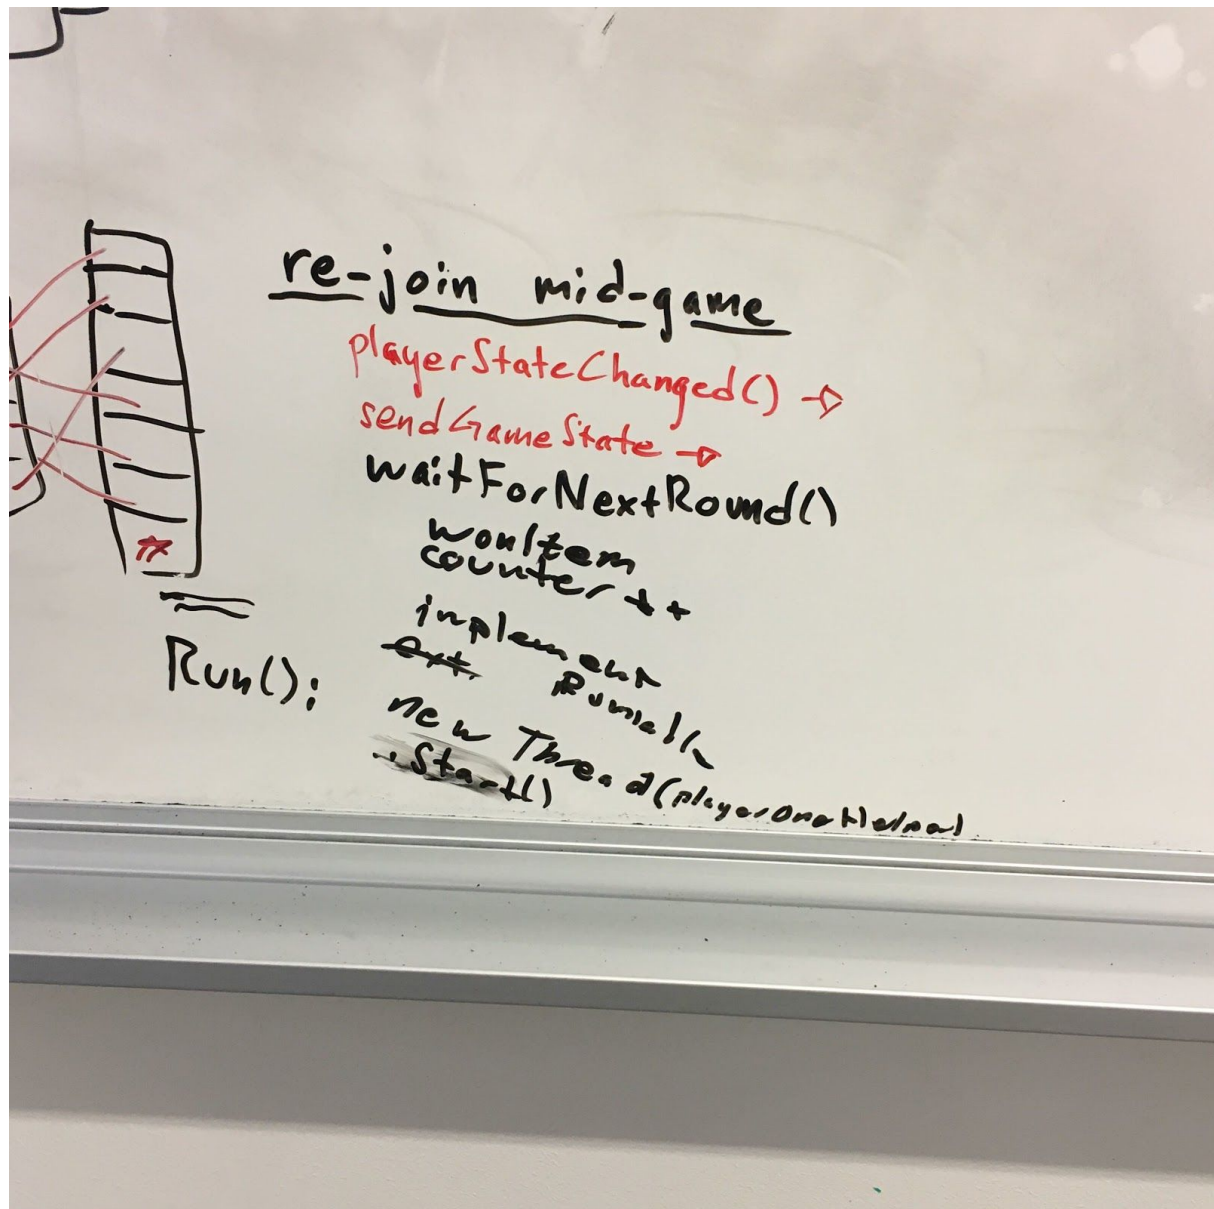 re-join mid-game
playerStateChanged() →
sendGameState →
waitForNextRound()
wonItem
counter++
implement
ext.
Run():
new Thread(playerOneHelper)
..Start()